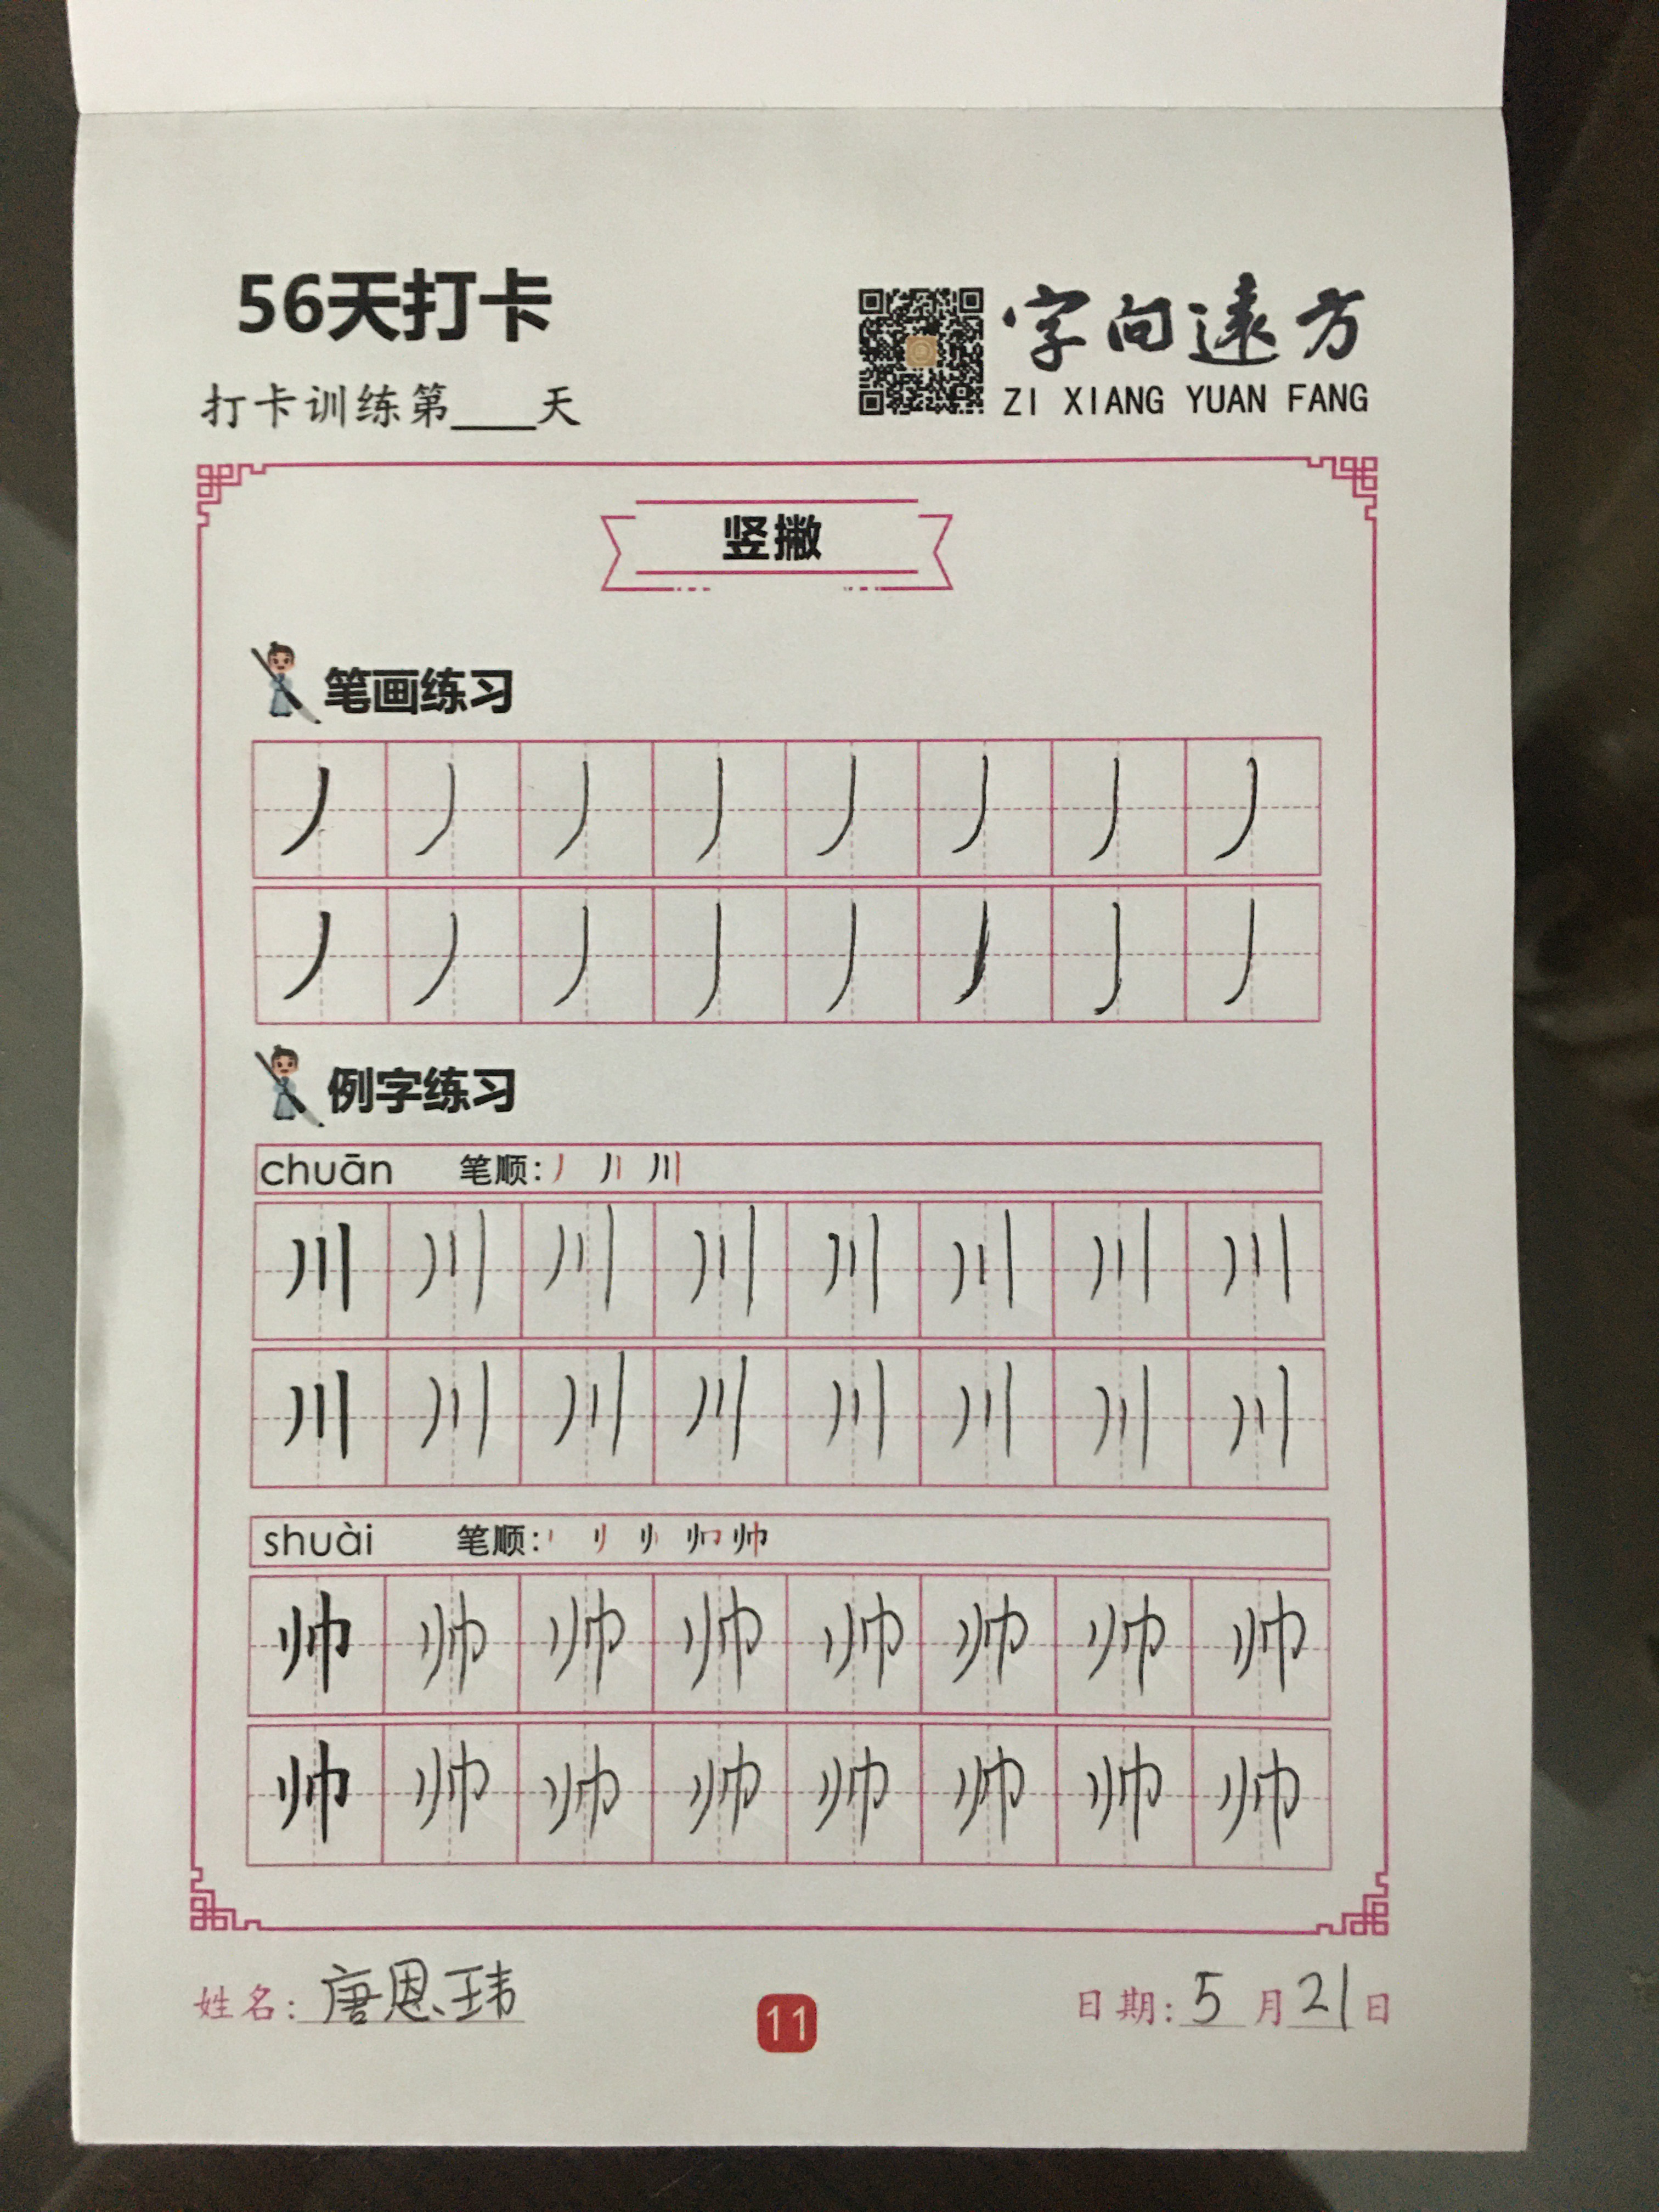 56天打卡
字向遠方
打卡训练第____天
ZI XIANG YUAN FANG
竖撇
笔画练习
丿 丿 丿 丿 丿 丿 丿 丿
丿 丿 丿 丿 丿 丿 丿 丿
例字练习
chuān 笔顺: 丿 丿丨 川
川 川 川 川 川 川 川 川
川 川 川 川 川 川 川 川
shuài 笔顺: 帅
帅 帅 帅 帅 帅 帅 帅 帅
帅 帅 帅 帅 帅 帅 帅 帅
姓名: 唐恩玮
11
日期: 5 月 21 日